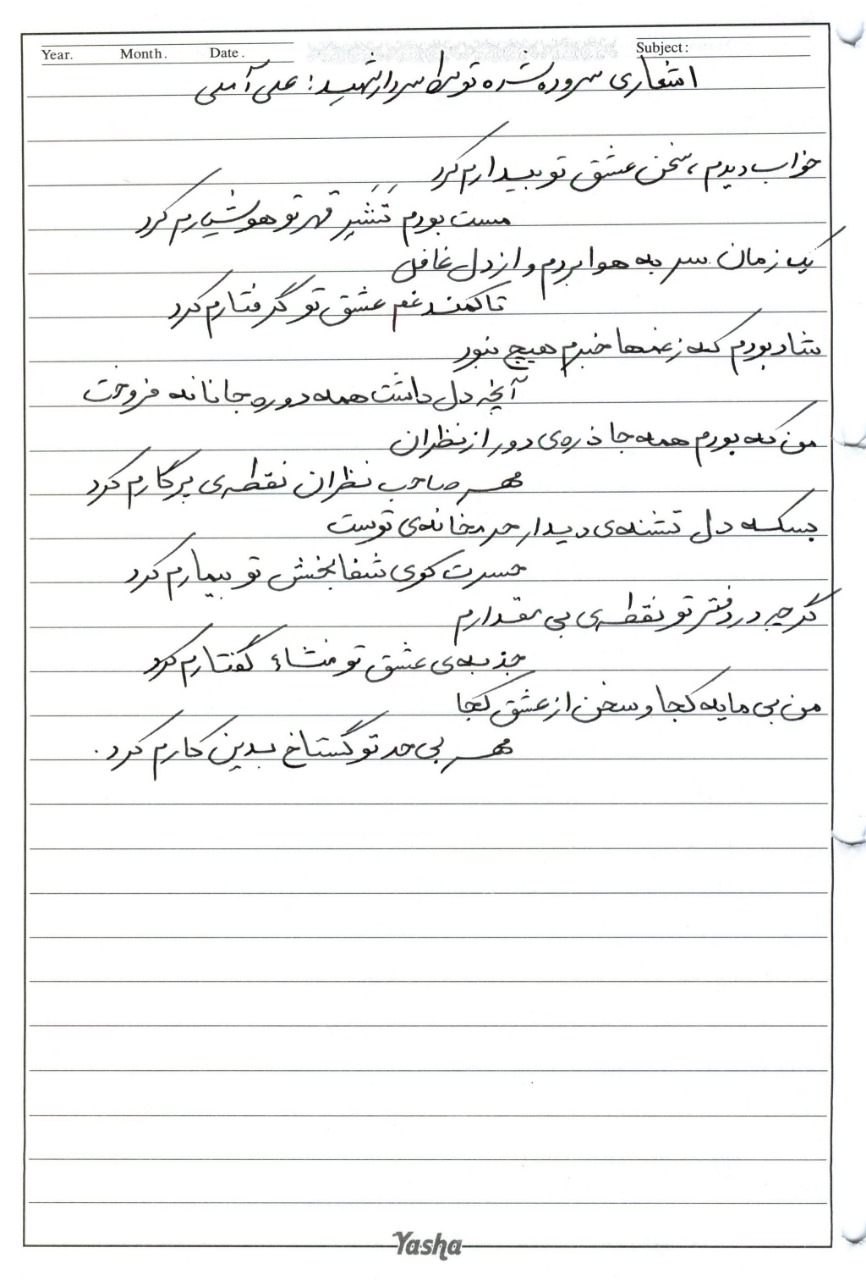 Year. Month. Date. Subject:
اشعاری سروده شده توسط سردار شهید: علی آملی
خواب دیدم، سخن عشق تو بیدارم کرد
مست بودم تَشَرِ قهر تو هوشیارم کرد
یک زمان سر به هوا بردم و از دل غافل
تا کمند غم عشق تو گرفتارم کرد
شاد بودم که ز غمها خبرم هیچ نبود
آنچه دل داشت همه دوره جانانه فروخت
من که بودم همه جا ذره‌ی دور از نظران
مهر صاحب نظران نقطه‌ی پرگارم کرد
بسکه دل تشنه‌ی دیدار حرمخانه‌ی توست
حسرت کوی شفابخش تو بیمارم کرد
گرچه در دفتر تو نقطه‌ی بی مقدارم
جذبه‌ی عشق تو منشاء گفتارم کرد
من بی مایه کجا و سخن از عشق کجا
مهر بی حد تو گستاخ بدین کارم کرد.
Yasha